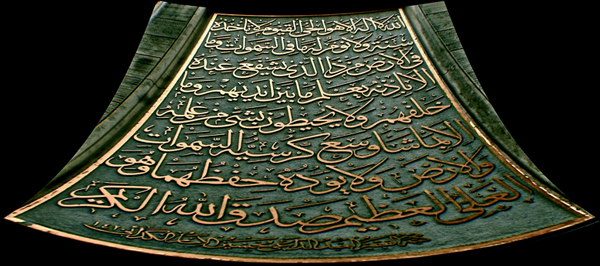 الله لا إله إلا هو الحي القيوم لا تأخذه
سنة ولا نوم له ما في السموات وما
في الأرض من ذا الذي يشفع عنده
إلا بإذنه يعلم ما بين أيديهم وما
خلفهم ولا يحيطون بشيء من علمه
إلا بما شاء وسع كرسيه السموات
والأرض ولا يؤده حفظهما وهو
العلي العظيم صدق الله الكريم